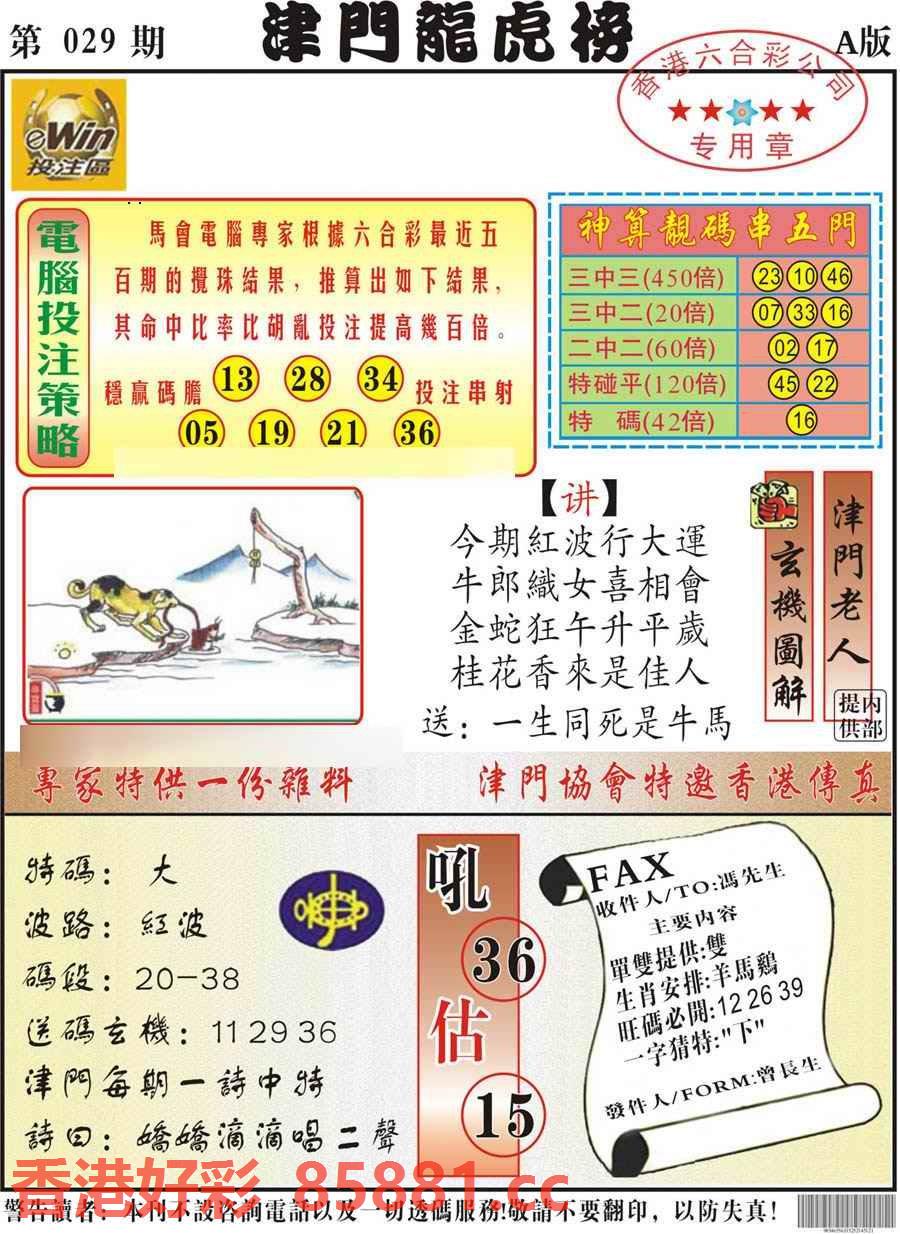 第 029 期
津門龍虎榜
A版
香港六合彩公司
专用章
eWin
投注區
電腦投注策略
馬會電腦專家根據六合彩最近五
百期的攪珠結果，推算出如下結果，
其命中比率比胡亂投注提高幾百倍。
穩贏碼膽 13 28 34 投注串射
05 19 21 36
神算靚碼串五門
三中三(450倍) 23 10 46
三中二(20倍) 07 33 16
二中二(60倍) 02 17
特碰平(120倍) 45 22
特 碼(42倍) 16
【讲】
今期紅波行大運
牛郎織女喜相會
金蛇狂午升平歲
桂花香來是佳人
送：一生同死是牛馬
玄機圖解
津門老人
内部提供
專家特供一份雜料
津門協會特邀香港傳真
特碼：大
波路：紅波
碼段：20-38
送碼玄機：11 29 36
津門每期一詩中特
詩曰：嬌嬌滴滴唱二聲
吼
36
估
15
FAX
收件人/TO:馮先生
主要内容
單雙提供:雙
生肖安排:羊馬鷄
旺碼必開:12 26 39
一字猜特:"下"
發件人/FORM:曾長生
香港好彩 85881.cc
警告讀者：本刊不設咨詢電話以及一切透碼服務!敬請不要翻印，以防失真!